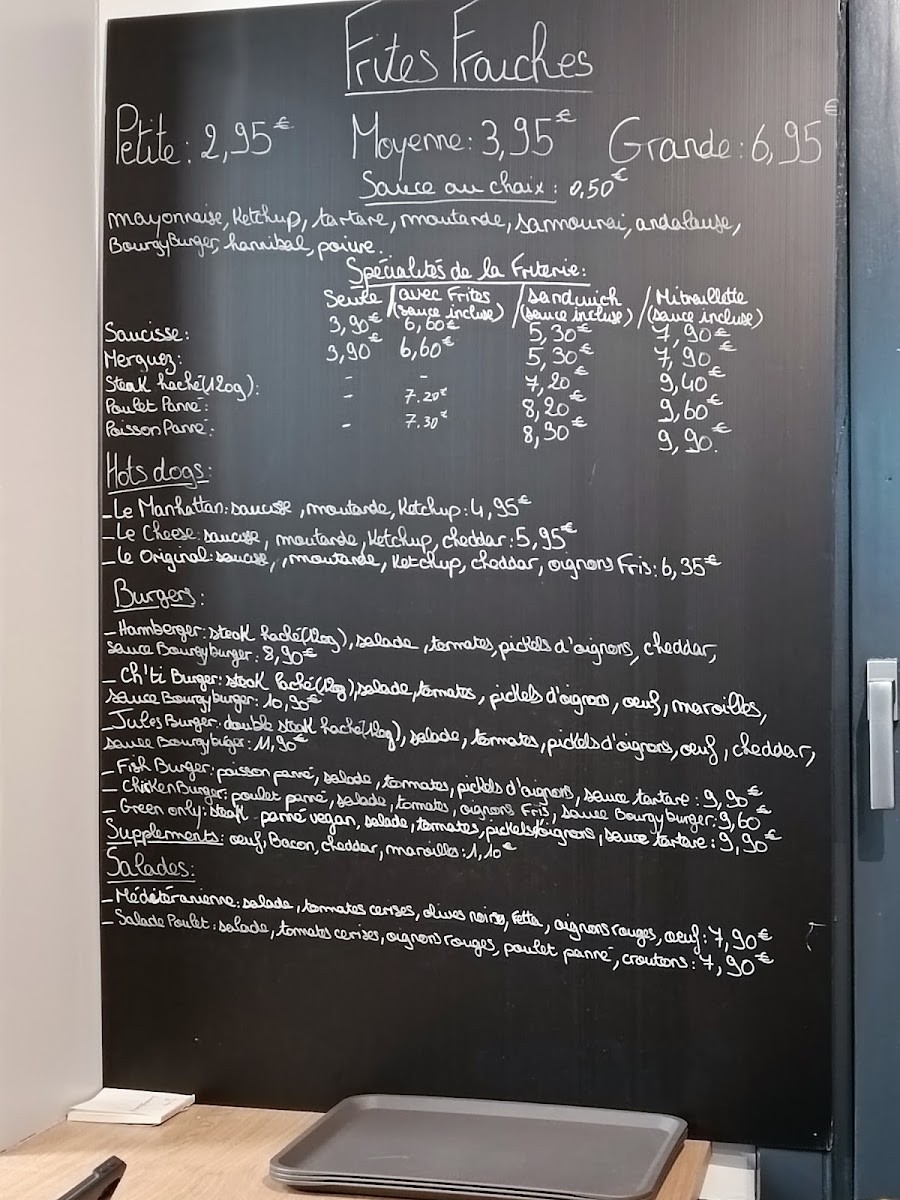 Frites Fraiches
Petite : 2,95€ Moyenne : 3,95€ Grande : 6,95€
Sauce au choix : 0,50€
mayonnaise, Ketchup, tartare, moutarde, samourai, andalouse,
BourgyBurger, hannibal, poivre.
Spécialités de la Friterie :
Seule / avec Frites / sandwich / Mitraillette
(sauce incluse) / (sauce incluse) (sauce incluse)
Saucisse : 3,90€ 6,60€ 5,30€ 7,90€
Merguez : 3,90€ 6,60€ 5,30€ 7,90€
Steak haché (120g) : - - 7,20€ 9,40€
Poulet Panné : - 7.20€ 8,20€ 9,60€
Poisson Panné : - 7.30€ 8,30€ 9,90.
Hots dogs :
- Le Manhattan : saucisse, moutarde, Ketchup : 4,95€
- Le Cheese : saucisse, moutarde, Ketchup, cheddar : 5,95€
- Le Original : saucisse, , moutarde, Ketchup, cheddar, oignons Fris : 6,35€
Burgers :
- Hamberger : steak haché (120g), salade, tomates, pickels d'oignons, cheddar,
sauce Bourgyburger : 8,90€
- Ch'ti Burger : steak haché (120g), salade, tomates, pickels d'oignons, oeuf, maroilles,
sauce Bourgyburger : 10,90€
- Jules Burger : double steak haché (120g), salade, tomates, pickels d'oignons, oeuf, cheddar,
sauce Bourgyburger : 11,90€
- Fish Burger : poisson panné, salade, tommates, pickels d'oignons, sauce tartare : 9,90€
- Chicken Burger : poulet panné, salade, tomates, oignons Fris, sauce Bourgyburger : 9,60€
- Green only : steak panné vegan, salade, tomates, pickels d'oignons, sauce tartare : 9,90€
Supplements : oeuf, Bacon, cheddar, maroilles : 1,10€
Salades :
- Méditéranienne : salade, tommates cerises, olives noires, Fetta, oignons rouges, oeuf : 7,90€
- Salade Poulet : salade, tomates cerises, oignons rouges, poulet panné, croutons : 7,90€